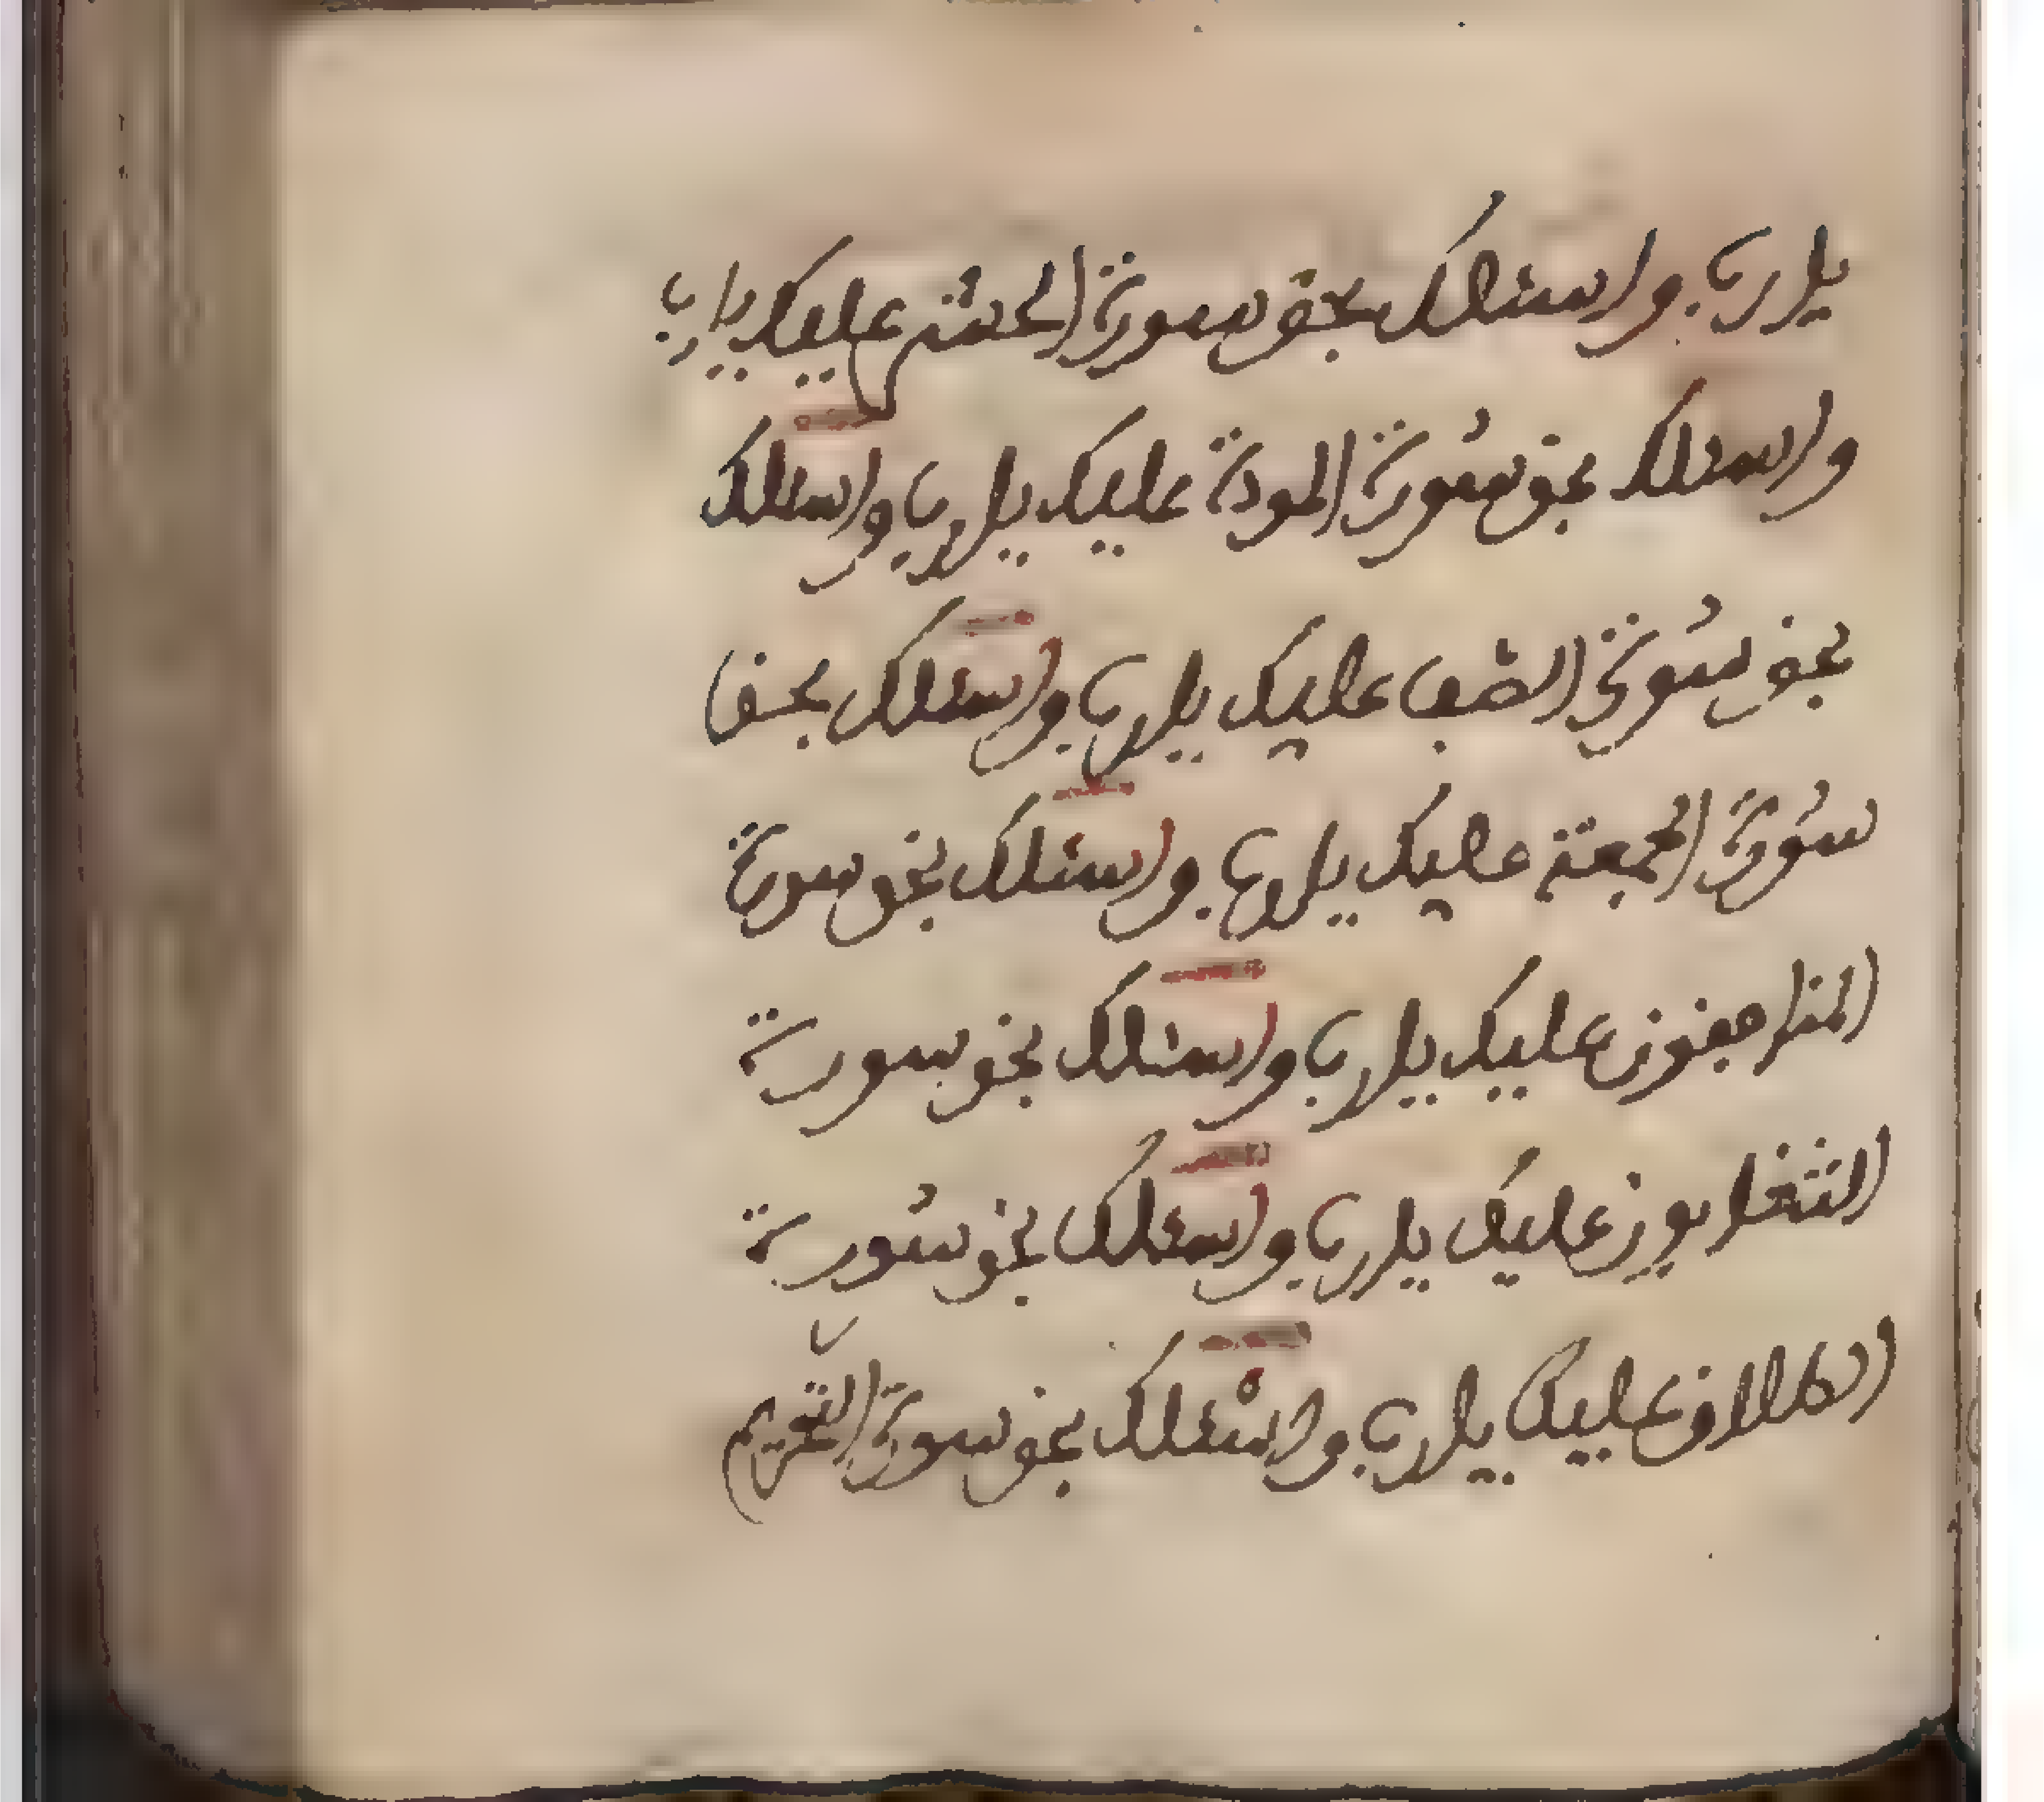 يا رب واسئلك بحق سورة الحشر عليك يا رب
واسئلك بحق سورة المودة عليك يا رب واسئلك
بحق سورة الصف عليك يا رب واسئلك بحق
سورة الجمعة عليك يا رب واسئلك بحق سورة
المنافقون عليك يا رب واسئلك بحق سورة
التغابون عليك يا رب واسئلك بحق سورة
الطلاق عليك يا رب واسئلك بحق سورة التحريم